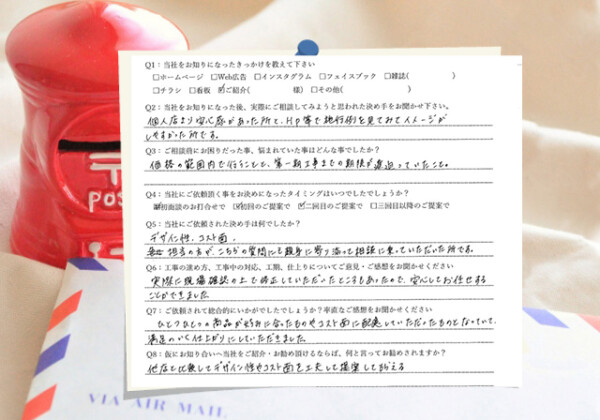 Q1：当社をお知りになったきっかけを教えて下さい
□ホームページ □Web広告 □インスタグラム □フェイスブック □雑誌（ ）
□チラシ □看板 ☑ご紹介（ 様）□その他（ ）
Q2：当社をお知りになった後、実際にご相談してみようと思われた決め手をお聞かせ下さい。
個人店より安心感があった所と、HP等で施行例を見ておてイメージが
しやすかった所です。
Q3：ご相談前にお困りだった事、悩まれていた事はどんな事でしたか？
価格の範囲内で行うことと、第一期工事までの期限が迫っていたこと。
Q4：当社にご依頼頂く事をお決めになったタイミングはいつでしたでしょうか？
初面談のお打合せで ☑初回のご提案で ☑二回目のご提案で □三回目以降のご提案で
Q5：当社にご依頼された決め手は何でしたか？
デザイン性、コスト面、
担当の方が、こちらの質問にも親身に寄り添って相談に乗っていただいた所です。
Q6：工事の進め方、工事中の対応、工期、仕上りについてご意見・ご感想をお聞かせください
実際に現場確認の上で修正していただいたところもあったので、安心してお任せする
ことができました。
Q7：ご依頼されて総合的にいかがでしたでしょうか？率直なご感想をお聞かせください
ひとつひとつの商品が好みに合ったものやコスト面に配慮していただいたものとなっていて、
満足のいく仕上がりにしていただきました。
Q8：仮にお知り合いへ当社をご紹介・お勧め頂けるならば、何と言ってお勧めされますか？
他店と比較してデザイン性やコスト面を工夫して提案して貰える
POS
VIA AIR MAIL